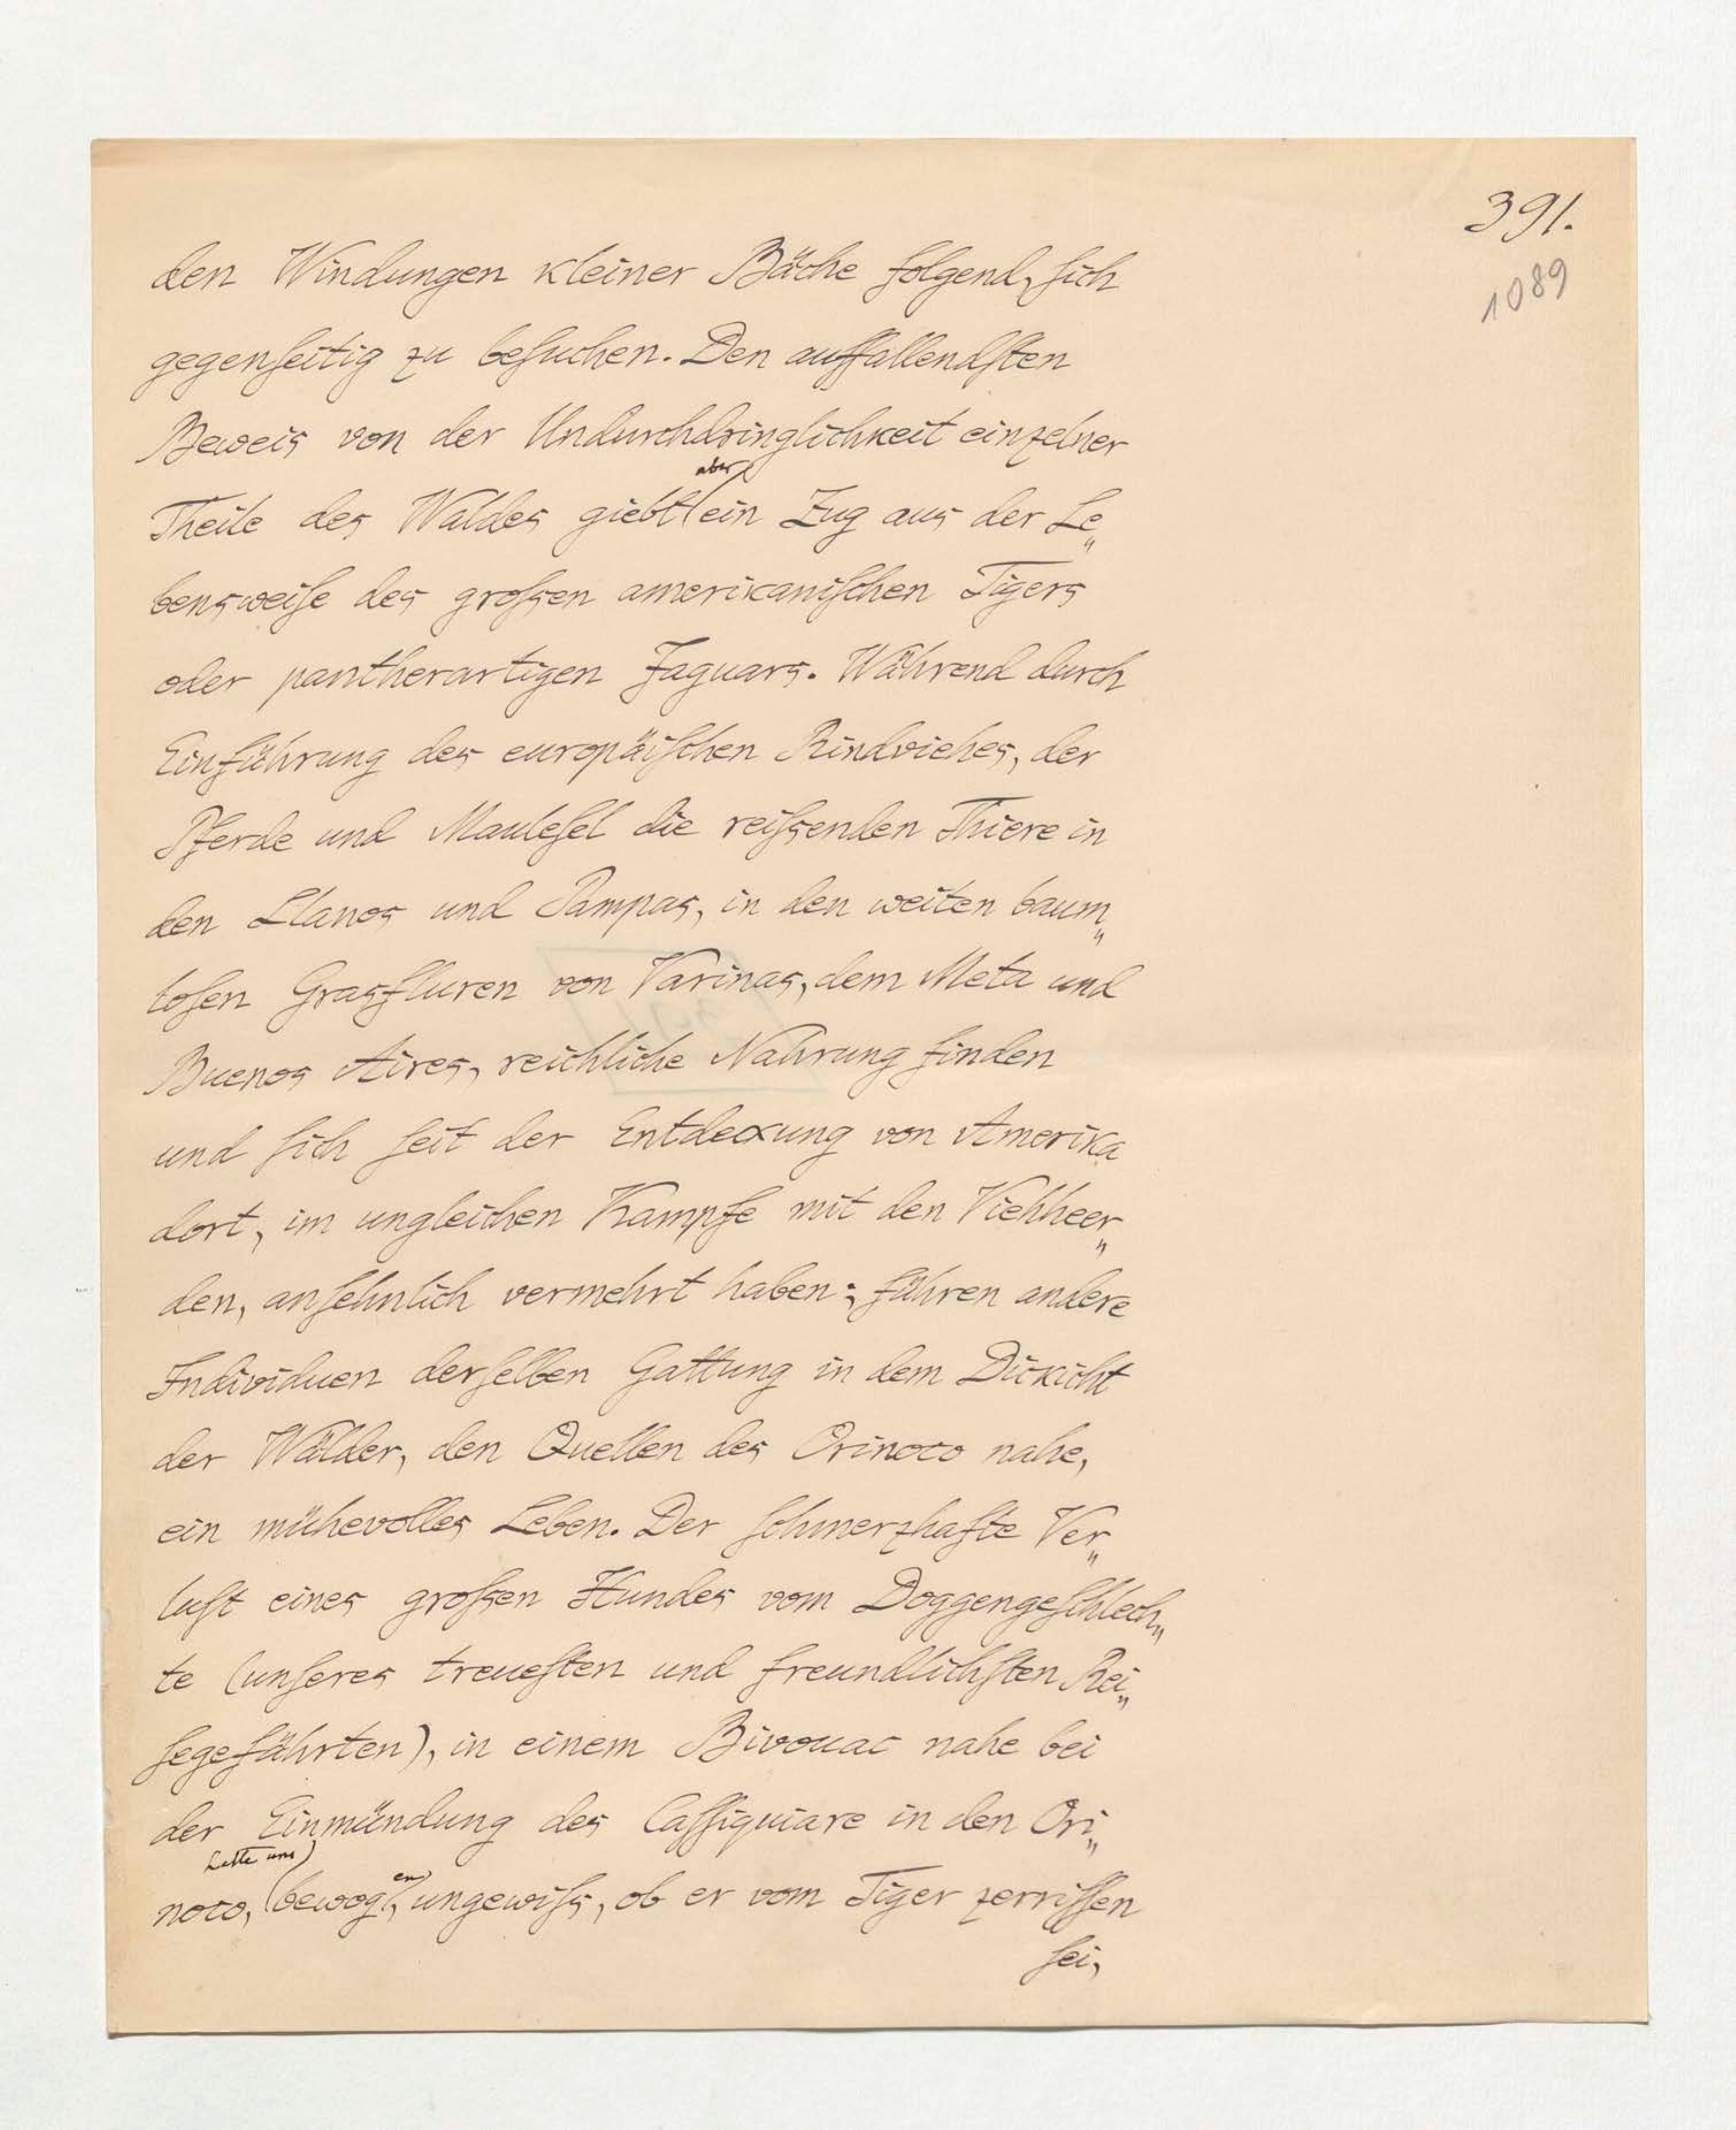 391.
1089
den Windungen kleiner Bäche folgend, sich
gegenseitig zu besuchen. Den auffallendsten
Beweis von der Undurchdringlichkeit einzelner
aber
Theile des Waldes giebt ein Zug aus der Le„
bensweise des grossen amerikanischen Tigers
oder pantherartigen Jaguars. Während durch
Einführung des europäischen Rindviehes, der
Pferde und Maulesel die reissenden Thiere in
den Llanos und Pampas, in den weiten baum„
losen Grasfluren von Varinas, dem Meta und
Buenos Aires, reichliche Nahrung finden
und sich seit der Entdeckung von Amerika
dort, im ungleichen Kampfe mit den Viehheer„
den, ansehnlich vermehrt haben; führen andere
Individuen derselben Gattung in dem Dickicht
der Wälder, den Quellen des Orinoco nahe,
ein mühevolles Leben. Der schmerzhafte Ver„
lust eines grossen Hundes vom Doggengeschlech„
te (unseres treuesten und freundlichsten Rei„
segefährten), in einem Bivouac nahe bei
der Einmündung des Cassiquiare in den Ori„
hatte uns en
noco, bewog, ungewiss, ob er vom Tiger zerrissen
sei,